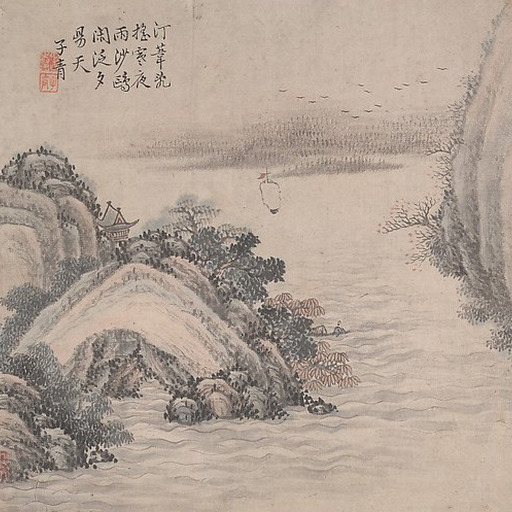 汀葦乱
搖寒夜
雨沙鷗
閑泛夕
昜天
子青